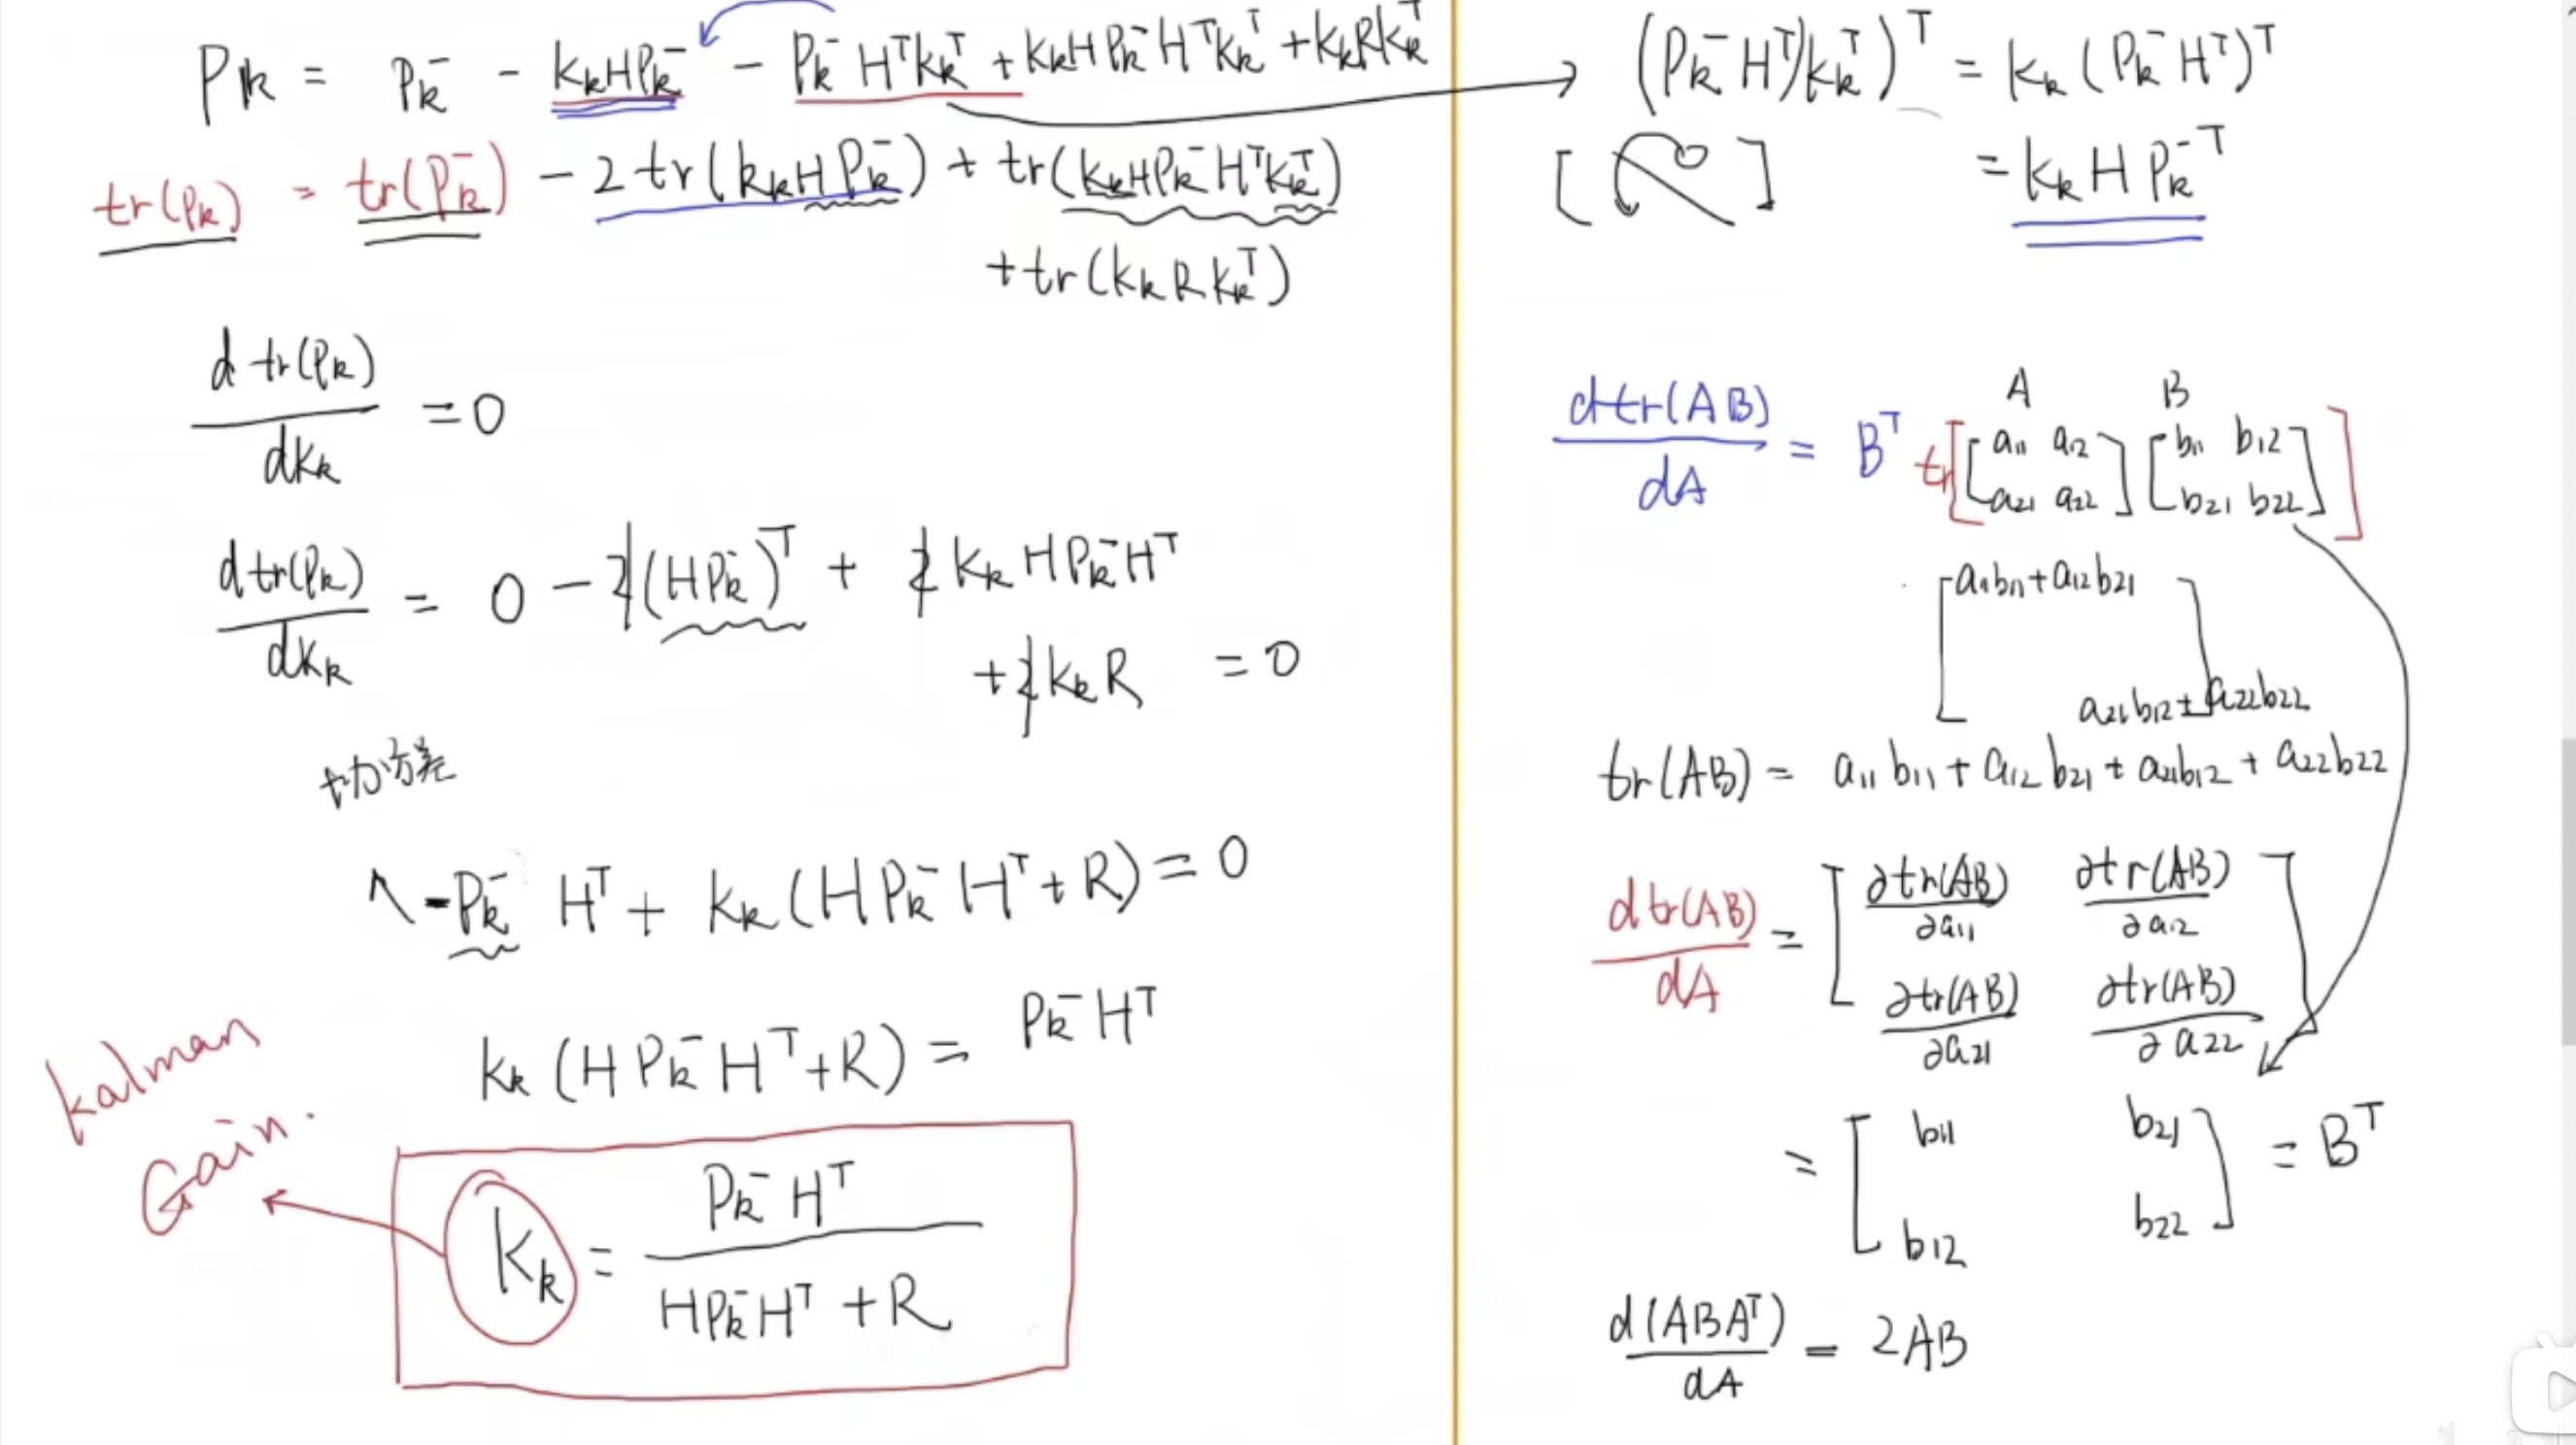 Pₖ = Pₖ⁻ - KₖHPₖ⁻ - Pₖ⁻HᵀKₖᵀ + KₖHPₖ⁻HᵀKₖᵀ + KₖRKₖᵀ
tr(Pₖ) = tr(Pₖ⁻) - 2tr(KₖHPₖ⁻) + tr(KₖHPₖ⁻HᵀKₖᵀ)
+ tr(KₖRKₖᵀ)
d tr(Pₖ)
dKₖ
= 0
d tr(Pₖ)
dKₖ
= 0 - 2(HPₖ⁻)ᵀ + 2KₖHPₖ⁻Hᵀ
+ 2KₖR = 0
协方差
-Pₖ⁻Hᵀ + Kₖ(HPₖ⁻Hᵀ + R) = 0
Kₖ(HPₖ⁻Hᵀ + R) = Pₖ⁻Hᵀ
kalman
Gain.
Kₖ =
Pₖ⁻Hᵀ
HPₖ⁻Hᵀ + R
(Pₖ⁻Hᵀ)Kₖᵀ)ᵀ = Kₖ(Pₖ⁻Hᵀ)ᵀ
= KₖHPₖ⁻ᵀ
A B
dtr(AB)
dA
= Bᵀ
tr[[a₁₁ a₁₂] [b₁₁ b₁₂]]
[a₂₁ a₂₂] [b₂₁ b₂₂]
[a₁₁b₁₁ + a₁₂b₂₁
a₂₁b₁₂ + a₂₂b₂₂]
tr(AB) = a₁₁b₁₁ + a₁₂b₂₁ + a₂₁b₁₂ + a₂₂b₂₂
dtr(AB)
dA
=
∂tr(AB) ∂tr(AB)
∂a₁₁ ∂a₁₂
∂tr(AB) ∂tr(AB)
∂a₂₁ ∂a₂₂
= [b₁₁ b₂₁
b₁₂ b₂₂] = Bᵀ
d(ABAᵀ)
dA
= 2AB